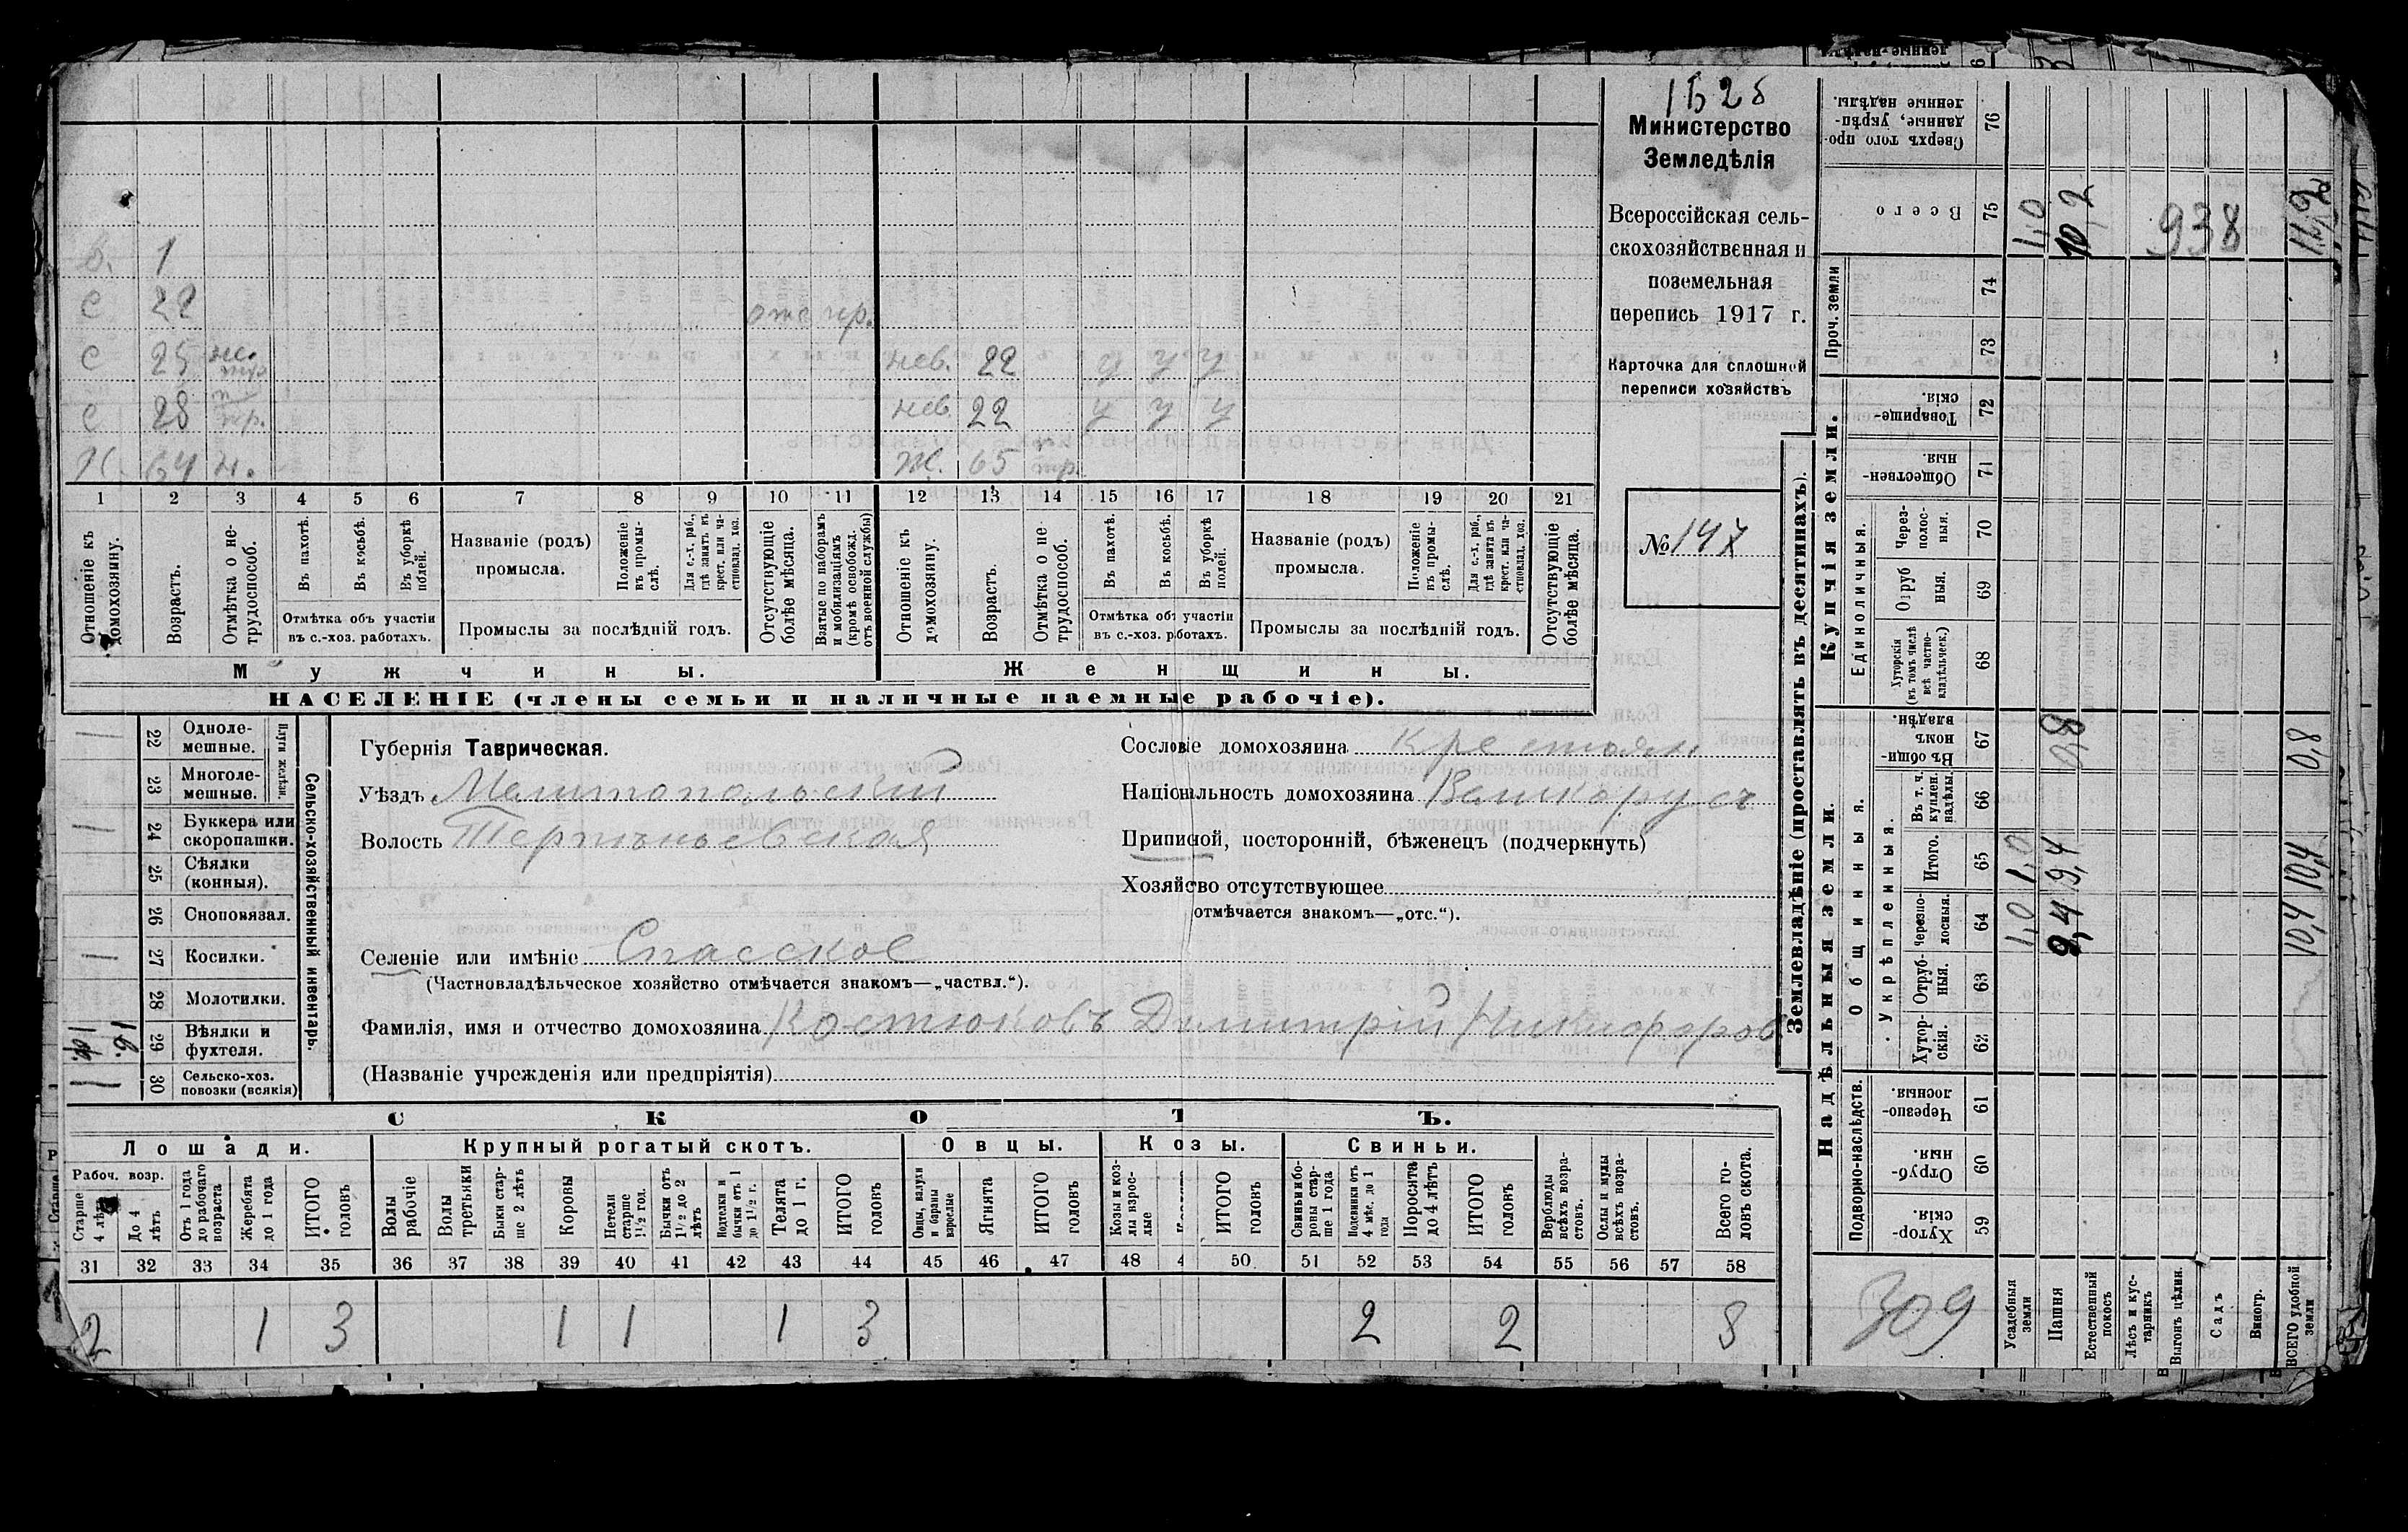 1628
Министерство
Земледѣлія
Всероссійская сель-
скохозяйственная и
поземельная
перепись 1917 г.
Карточка для сплошной
переписи хозяйствъ
№ 147
1
с 22 отс пр.
с 25 нев. 22 у у у
с 28 нев. 22 у у у
Х. 64 н. Ж. 65
1 2 3 4 5 6 7 8 9 10 11 12 13 14 15 16 17 18 19 20 21
Отношеніе къ домохозяину.
Возрастъ.
Отмѣтка о не-трудоспособ.
Въ пахотѣ.
Въ косьбѣ.
Въ уборкѣ полей.
Отмѣтка объ участіи
въ с.-хоз. работахъ.
Названіе (родъ)
промысла.
Положеніе въ промы-слѣ.
Для с.-х. раб., гдѣ занятъ въ крест. или ча-стновлад. хоз.
Промыслы за послѣдній годъ.
Отсутствующіе болѣе мѣсяца.
Взятые по наборамъ и мобилизаціямъ (кромѣ освобожд. отъ военной службы)
Отношеніе къ домохозяину.
Возрастъ.
Отмѣтка о не трудоспособ.
Въ пахотѣ.
Въ косьбѣ.
Въ уборкѣ полей.
Отмѣтка объ участіи
въ с.-хоз. работахъ.
Названіе (родъ)
промысла.
Положеніе въ промы-слѣ.
Для с.-х. раб., гдѣ занята въ крест. или ча-стновлад. хоз.
Промыслы за послѣдній годъ.
Отсутствующіе болѣе мѣсяца.
Мужчины.
Женщины.
НАСЕЛЕНІЕ (члены семьи и наличные наемные рабочіе).
22 Одноле-мешные.
23 Многоле-мешные.
Плуги желѣзн.
24 Буккера или скоропашки.
25 Сѣялки (конныя).
26 Сноповязал.
27 Косилки.
28 Молотилки.
29 Вѣялки и фухтеля.
30 Сельско-хоз. повозки (всякія)
Сельско-хозяйственный инвентарь.
Губернія Таврическая.
Уѣздъ Мелитопольскій
Волость Терпѣньевская
Селеніе или имѣніе Спасское
(Частновладѣльческое хозяйство отмѣчается знакомъ—„частвл.“).
Фамилія, имя и отчество домохозяина Костюковъ Димитрій Никифоров
(Названіе учрежденія или предпріятія)
Сословіе домохозяина Крестьян.
Національность домохозяина Великорусъ
Приписной, посторонній, бѣженецъ (подчеркнуть)
Хозяйство отсутствующее
отмѣчается знакомъ—„отс.“).
СКОТЪ.
Лошади.
Крупный рогатый скотъ.
Овцы.
Козы.
Свиньи.
Рабоч. возр.
Старше 4 лѣтъ
До 4 лѣтъ
Отъ 1 года до рабочаго возраста
Жеребята до 1 года
ИТОГО головъ
Волы рабочіе
Волы третьяки
Быки стар-ше 2 лѣтъ
Коровы
Нетели старше 1 1/2 год.
Бычки отъ 1 1/2 до 2 лѣтъ
Подтелки и бычки отъ 1 до 1 1/2 г.
Телята до 1 г.
ИТОГО головъ
Овцы, валухи и бараны взрослые
Ягнята
ИТОГО головъ
Козы и коз-лы взрос-лые
ИТОГО головъ
Свиньи и бо-ровы стар-ше 1 года
Подсвинки отъ 4 мѣс. до 1 года
Поросята до 4 лѣтъ
ИТОГО головъ
Верблюды всѣхъ возра-стовъ.
Ослы и мулы всѣхъ возра-стовъ.
Всего го-ловъ скота.
31 32 33 34 35 36 37 38 39 40 41 42 43 44 45 46 47 48 4 50 51 52 53 54 55 56 57 58
2 1 3 1 1 1 3 2 2 8
Землевладѣніе (проставлять въ десятинахъ).
Купчія земли.
Надѣльныя земли.
Проч. земли
Единоличныя.
Общинныя.
Укрѣпленныя.
Подворно-наслѣдств.
Сверхъ того про-данные, укрѣп-ленные надѣлы. 76
Всего 75
74
73
Товарище-скія. 72
Обществен-ныя. 71
Через-полос-ныя. 70
Отруб ныя. 69
Хуторскія (въ томъ числѣ всѣ частно-владѣльческ.) 68
Въ общи-номъ владѣн. 67
Въ т. ч. куплен. надѣлы. 66
Итого. 65
Черезпо-лосныя. 64
Отруб-ныя. 63
Хутор-скія. 62
Черезпо-лосныя. 61
Отруб-ныя. 60
Хутор-скія. 59
1,0 10,2 938 11,2
0,8 0,8
1,0 9,4 10,4
1,0 9,4 10,4
309
Усадебныя земли
Пашня
Естественный покосъ
Лѣсъ и ку-старникъ
Выгонъ цѣлин.
Садъ
Виногр.
ВСЕГО удобной земли